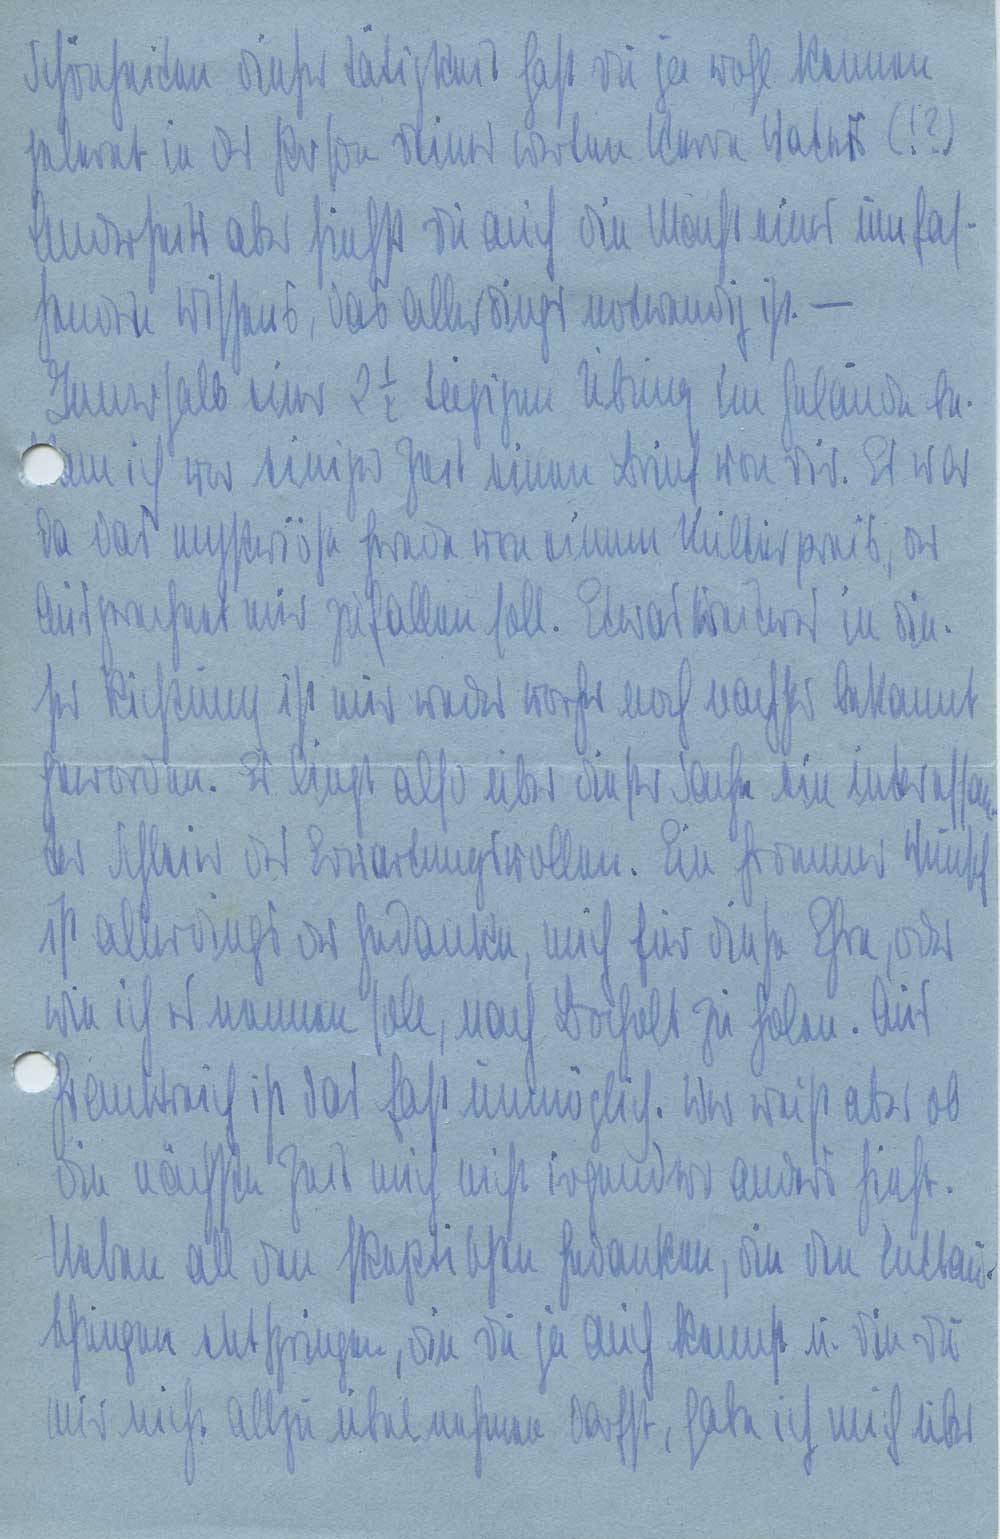 Schönheiten dieser Tätigkeit hast du ja wohl kennen
gelernt in der Person deines werten Herrn Vaters (!?)
Anderseits aber siehst du auch die Macht eines umfas-
senden Wissens, das allerdings notwendig ist. —
Innerhalb einer 2 1/2 tägigen Übung im Gelände be-
kam ich vor einiger Zeit einen Brief von dir. Es war
da das mysteriöse Gerede von einem Kulturpreis, der
ausgerechnet mir zufallen soll. Etwas in die-
ser Richtung ist mir weder vorher noch nachher bekannt
geworden. Es liegt also über dieser Sache ein interessan-
ter Schleier des Erwartungsvollen. Ein frommer Wunsch
ist allerdings der Gedanke, mich für diese Ehre, oder
wie ich es nennen soll, nach Bocholt zu holen. Aus
Frankreich ist das fast unmöglich. Wer weiß aber ob
die nächste Zeit mich nicht irgendwo anders sieht.
Neben all den skeptischen Gedanken, die den Enttäu-
schungen entspringen, die du ja auch kennst u. die du
mir nicht allzu übel nehmen darfst, habe ich mich über